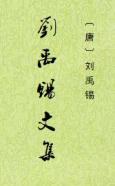 〔唐〕刘禹锡
劉禹錫文集